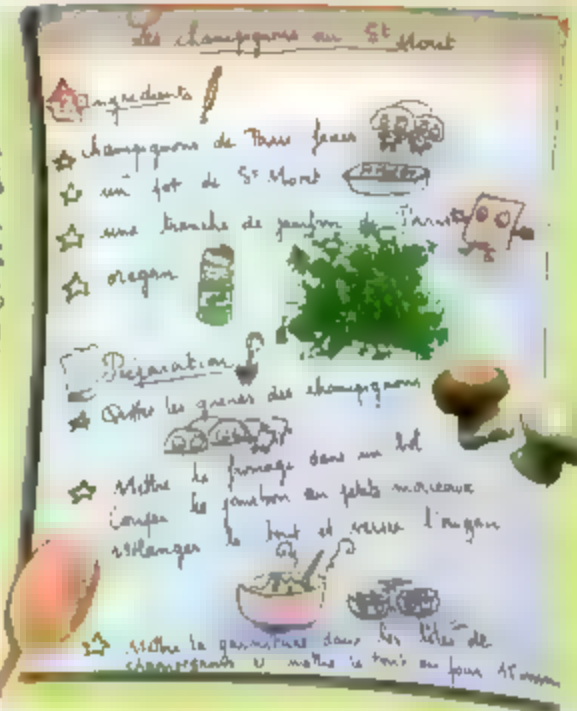 Les champignons au St Mont
Ingredients
champignons de Paris frais
un pot de St Mont
une tranche de jambon de Paris
oregan
Préparation
les champignons
Mettre le fromage dans un bol
Couper le jambon en petits morceaux
Mélanger le tout et verser l'origan
Mettre la garniture dans les têtes de
champignons et mettre le tout au four 15 min